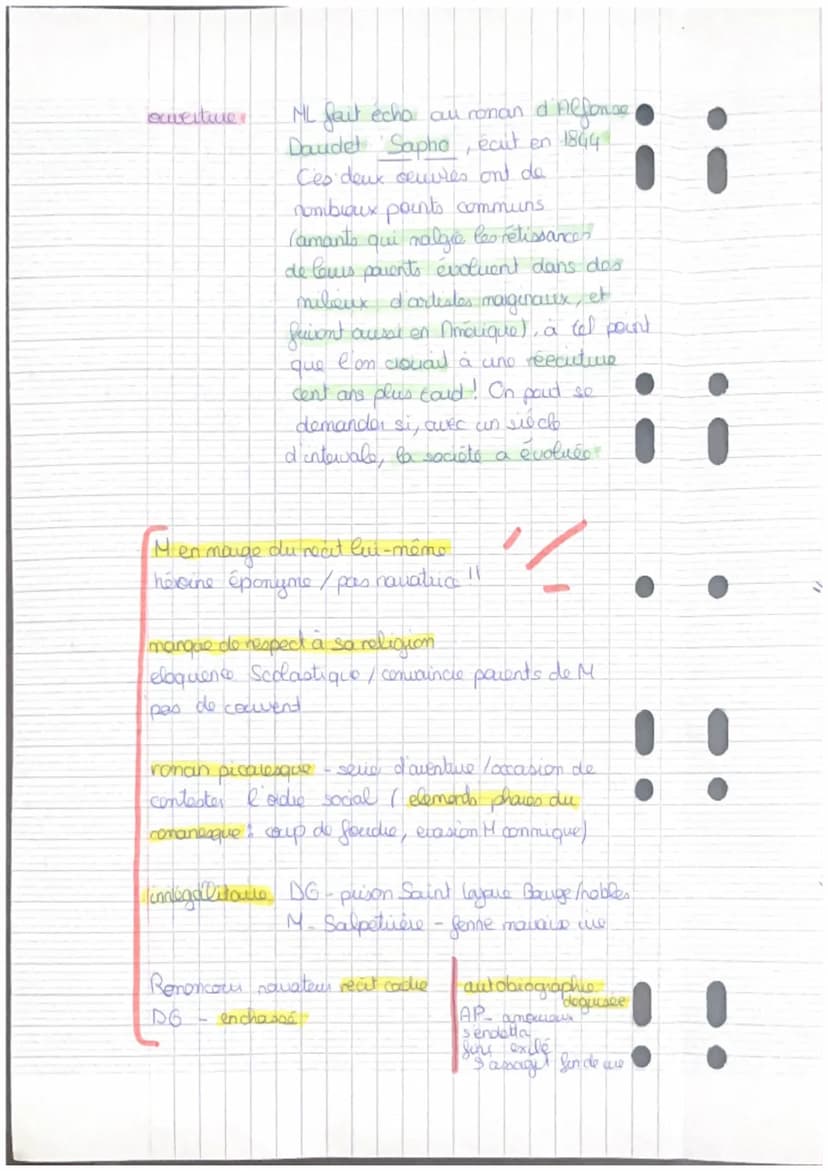 ouverture
ML fait écho au roman d'Alfonse
Daudet Sapho, écrit en 1844
Ces deux œuvres ont de
nombraux points communs
(amants qui malgré les rétissances
de leurs parents évoluent dans des
milieux d'artistes marginaux, et
fuiront aussi en Amérique), à tel point
que l'on croirait à une réécriture
cent ans plus tard! On peut se
demander si, avec un siècle
d'intervale, la société a évoluée
M en marge du récit lui-même
héroïne éponyme / pas narratrice !!
marque de respect à sa religion
eloquence Scolastique / convaincre parents de M
pas de couvent
roman picaresque - serie d'aventure / occasion de
contester l'ordre social (elements phares du
romanesque : coup de foudre, evasion M comique)
innégalitaire DG - prison Saint Lazare Bourge/nobles
M - Salpetrière - femme mauvaise vie
Renoncour narrateur recit cadre
DG - enchassé
autobiographie
deguisée
AP - amoureux
s'endetta
fuit exilé
s'assagit fin de vie